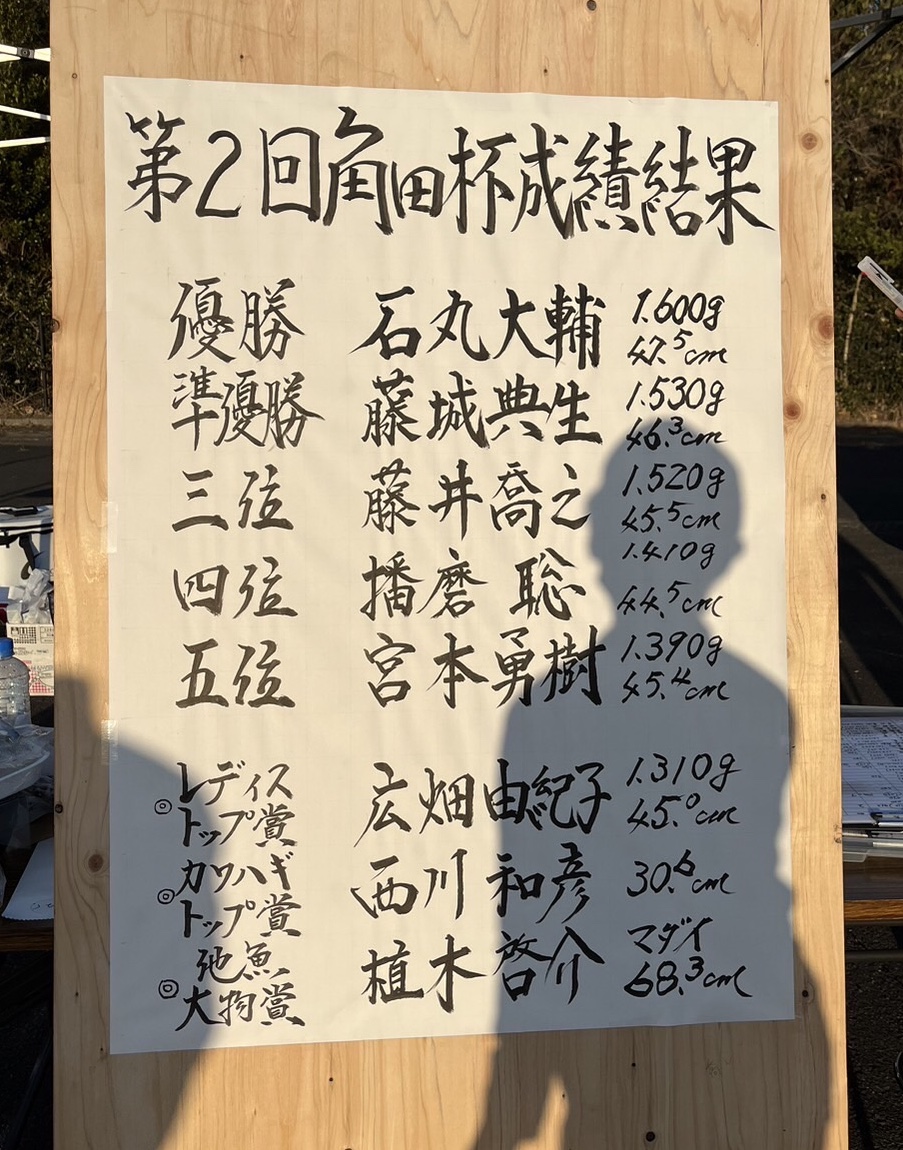 第2回角田杯成績結果
優勝 石丸大輔 1.600g 47.5cm
準優勝 藤城典生 1.530g 46.3cm
三位 藤井喬之 1.520g 45.5cm
四位 播磨 聡 1.410g 44.5cm
五位 宮本勇樹 1.390g 45.4cm
◎レディス トップ賞 広畑由紀子 1.310g 45.0cm
◎カワハギ トップ賞 西川和彦 30.6cm
◎他魚 大物賞 植木啓介 マダイ 68.3cm